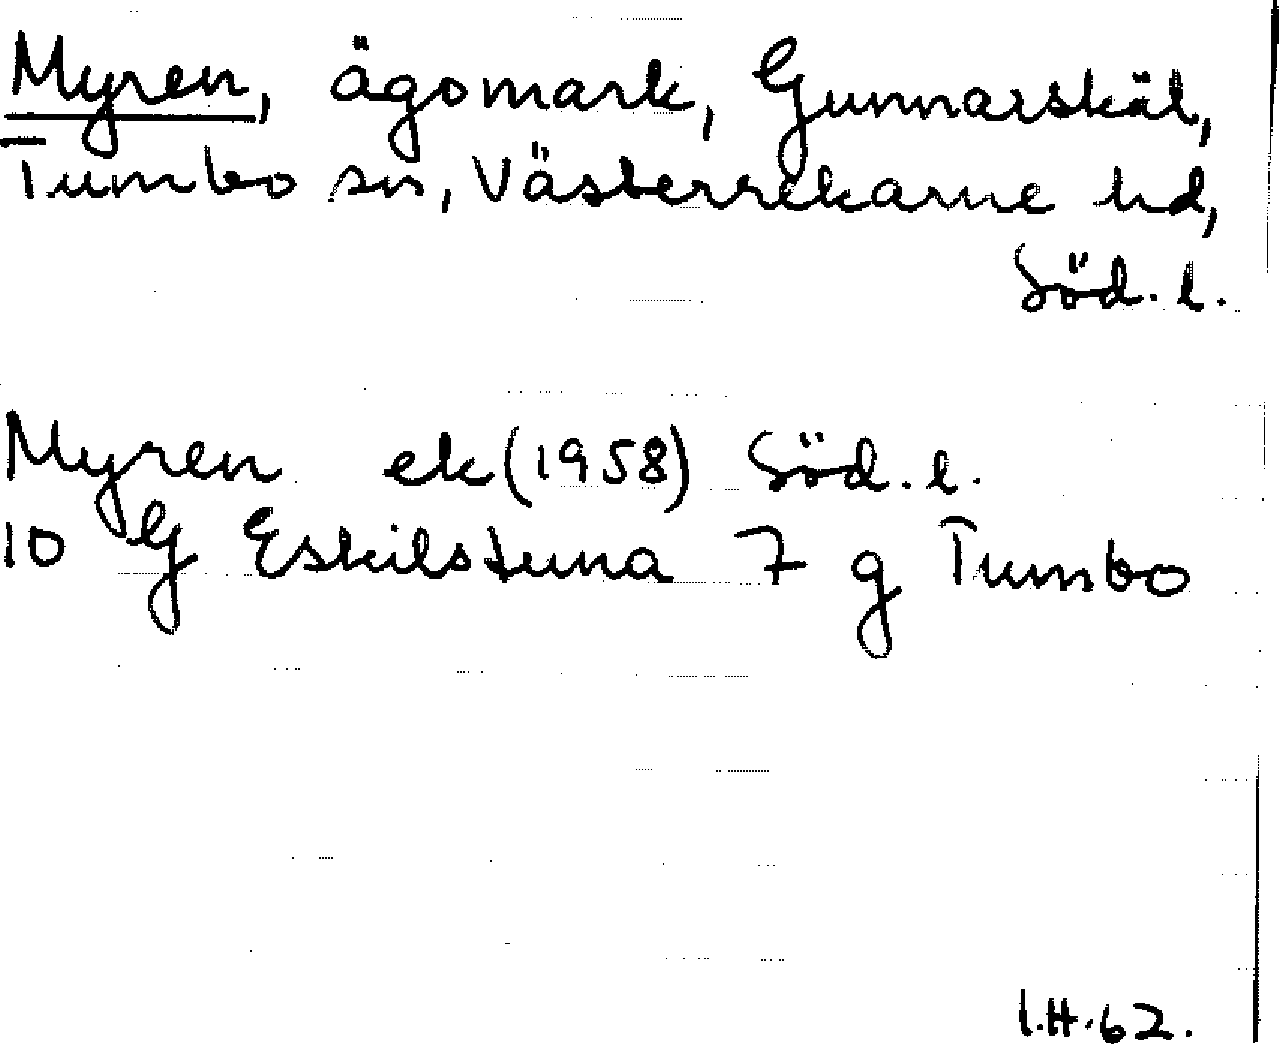 Myren, ägomark, Gunnarskäl,
Tumbo sn, Västerrekarne hd,
Söd. l.
Myren ek (1958) Söd. l.
10 G Eskilstuna 7 g Tumbo
I.H.62.